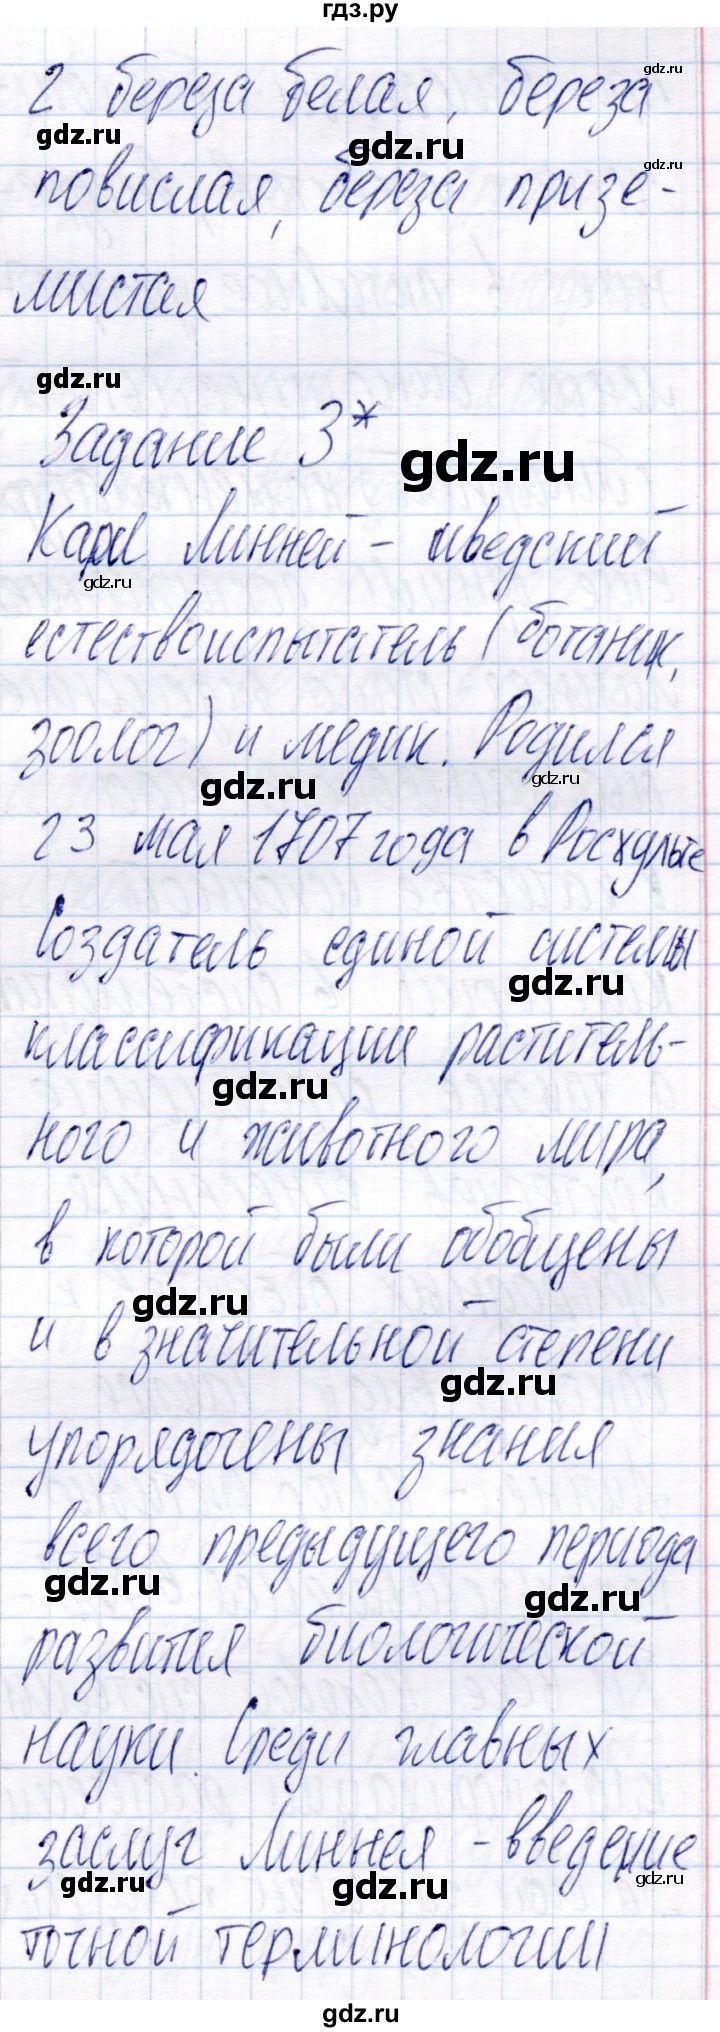 гдз.ру
2 береза белая, береза
повислая, береза призе-
мистая
Задание 3*
Карл Линней - шведский
естествоиспытатель (ботаник,
зоолог) и медик. Родился
23 мая 1707 года в Росхульте
Создатель единой системы
классификации раститель-
ного и животного мира,
в которой были обобщены
и в значительной степени
упорядочены знания
всего предыдущего периода
развития биологической
науки. Среди главных
заслуг Линнея - введение
точной терминологии
gdz.ru